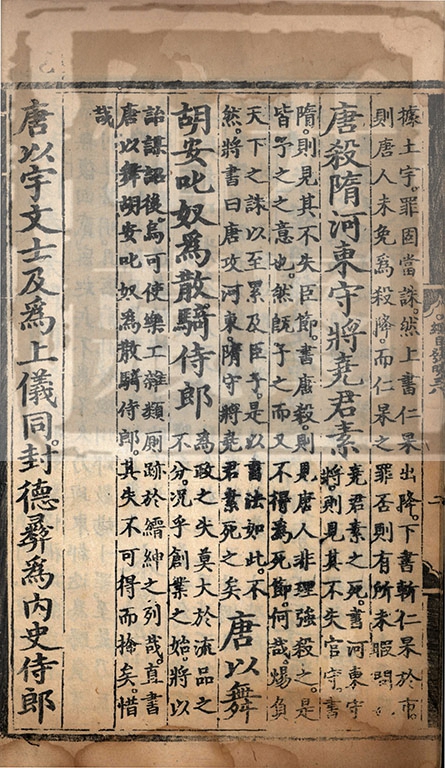 據土宇。罪固當誅。然上書仁杲出降。下書斬仁杲於市。
則唐人未免爲殺降。而仁杲之罪否則有所未暇問
唐殺隋河東守將堯君素
堯君素之死。書河東守
將。則見其不失官守。書
隋。則見其不失臣節。書唐殺。則見唐人非理強殺之。是
皆予之之意也。然旣予之而又不得爲死節。何哉。煬負
天下之誅以至累及臣子。是以書法如此。不
然。將書曰唐攻河東。隋守將堯君素死之矣
唐以舞
胡安叱奴爲散騎侍郎
爲政之失莫大於流品之
不分。況乎創業之始。將以
詒謀詔後。烏可使樂工雜類厠跡於縉紳之列哉。直書
唐以舞胡安叱奴爲散騎侍郎。其失不可得而掩矣。惜
哉
唐以宇文士及爲上儀同。封德彝爲內史侍郎